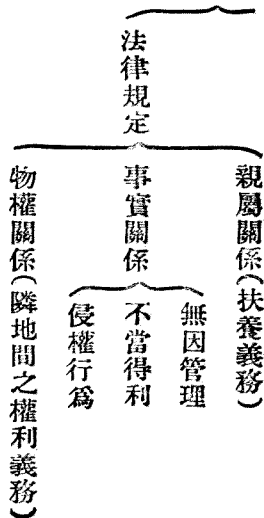 法律規定
親屬關係(扶養義務)
事實關係
無因管理
不當得利
侵權行爲
物權關係(隣地間之權利義務)